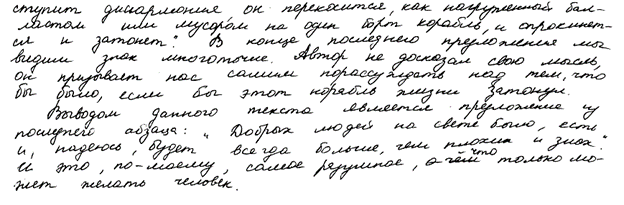 ступит дисгармония он перекосится, как нагруженный бал-
ластом или мусором на один борт корабль, и опрокинет-
ся и затонет". В конце последнего предложения мы
видим знак многоточие. Автор не досказал свою мысль,
он призывает нас самим порассуждать над тем, что
бы было, если бы этот корабль жизни затонул.
Выводом данного текста является предложение из
последнего абзаца: „Добрых людей на свете было, есть
и, надеюсь, будет всегда больше, чем плохих и злых".
И это, по-моему, самое разумное, о чём что только мо-
жет желать человек.